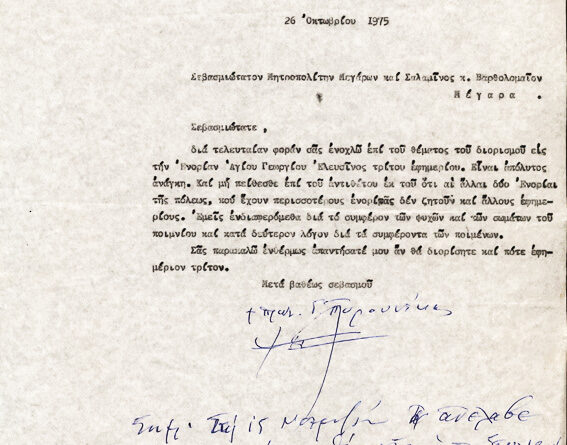 26 Ὀκτωβρίου 1975
Σεβασμιώτατον Μητροπολίτην Μεγάρων καί Σαλαμῖνος κ. Βαρθολομαῖον
Μέγαρα .
Σεβασμιώτατε,
διά τελευταίαν φοράν σᾶς ἐνοχλῶ ἐπί τοῦ θέματος τοῦ διορισμοῦ εἰς
τήν Ἐνορίαν Ἁγίου Γεωργίου Ἐλευσῖνος τρίτου ἐφημερίου. Εἶναι ἀπόλυτος
ἀνάγκη. Καί μή πείθεσθε ἐπί τοῦ ἀντιθέτου ἐκ τοῦ ὅτι αἱ ἄλλαι δύο Ἐνορίαι
τῆς πόλεως, πού ἔχουν περισσοτέρους ἐνορίτας δέν ζητοῦν καί ἄλλους ἐφημε-
ρίους. Ἐμεῖς ἐνδιαφερόμεθα διά τό συμφέρον τῶν ψυχῶν καί τῶν σωμάτων τοῦ
ποιμνίου καί κατά δεύτερον λόγον διά τά συμφέροντα τῶν ποιμένων.
Σᾶς παρακαλῶ ἐνθέρμως ἀπαντήσατέ μου ἄν θά διορίσητε καί πότε ἐφη-
μέριον τρίτον.
Μετά βαθέως σεβασμοῦ
Σημ. Στίς 15 Νοεμβρίου